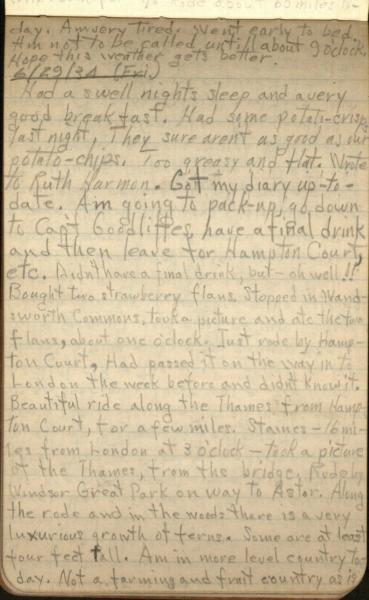 day. Am very tired. Went early to bed.
Am not to be called until about 9 o'clock.
Hope this weather gets better.
6/29/34 (Fri.)
Had a swell nights sleep and a very
good breakfast. Had some potato-crisps
last night, They sure arent as good as our
potato-chips. Too greasy and flat. Wrote
to Ruth Harmon. Got my diary up-to-
date. Am going to pack-up, go down
to Capt Goodliffes, have a final drink
and then leave for Hampton Court,
etc. Didn't have a final drink, but - oh well!!
Bought two strawberry flans. Stopped in Wand-
sworth Commons, took a picture and ate the two
flans, about one o'clock. Just rode by Hamp-
ton Court, Had passed it on the way in to
London the week before and didnt know it.
Beautiful ride along the Thames from Hamp-
ton Court, for a few miles. Staines - 16 mi-
les from London at 3 o'clock - took a picture
of the Thames, from the bridge, Rode by
Windsor Great Park on way to Ascot. Along
the rode and in the woods there is a very
luxurious growth of ferns. Some are at least
four feet tall. Am in more level country to-
day. Not a farming and fruit country as is